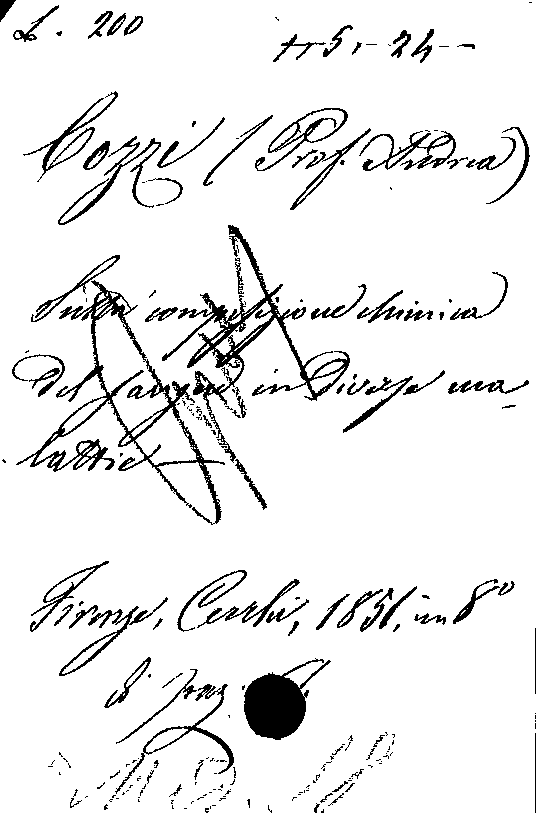 L. 200
5. 24
Cozzi (Prof. Andrea)
Sulla composizione chimica
del sangue in diverse ma-
lattie
Firenze, Cecchi, 1851, in 8º
di pag.